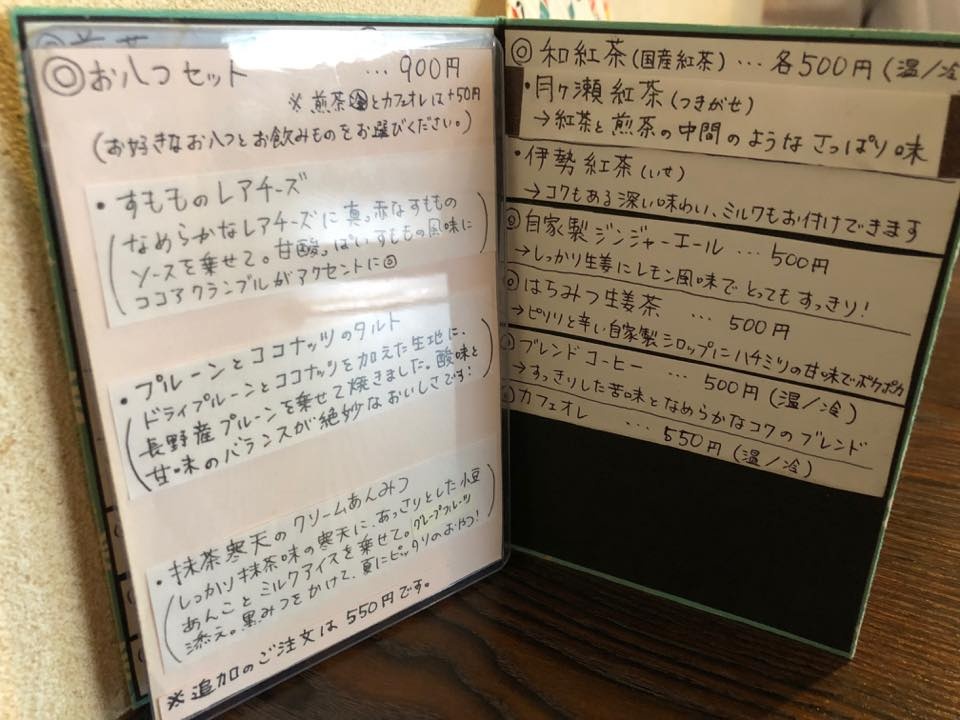 ◎お八つセット … 900円
※煎茶㊎とカフェオレは+50円
(お好きなお八つとお飲みものをお選びください。)
・すもものレアチーズ
(なめらかなレアチーズに真っ赤なすももの
ソースを乗せて。甘酸っぱいすももの風味に
ココアクランブルがアクセントに◎)
・プルーンとココナッツのタルト
(ドライプルーンとココナッツを加えた生地に、
長野産プルーンを乗せて焼きました。酸味と
甘味のバランスが絶妙なおいしさです!)
・抹茶寒天のクリームあんみつ
(しっかり抹茶味の寒天に、あっさりとした小豆
あんことミルクアイスを乗せて。グレープフルーツ
添え。黒みつをかけて、夏にピッタリのおやつ!)
※追加のご注文は550円です。
◎和紅茶(国産紅茶)… 各500円(温/冷
・月ヶ瀬紅茶(つきがせ)
→紅茶と煎茶の中間のようなさっぱり味
・伊勢紅茶(いせ)
→コクもある深い味わい、ミルクもお付けできます
◎自家製ジンジャーエール … 500円
→しっかり生姜にレモン風味でとってもすっきり!
◎はちみつ生姜茶 … 500円
→ピリリと辛い自家製シロップにハチミツの甘味でポカポカ
ブレンドコーヒー … 500円(温/冷)
→すっきりした苦味となめらかなコクのブレンド
カフェオレ … 550円(温/冷)